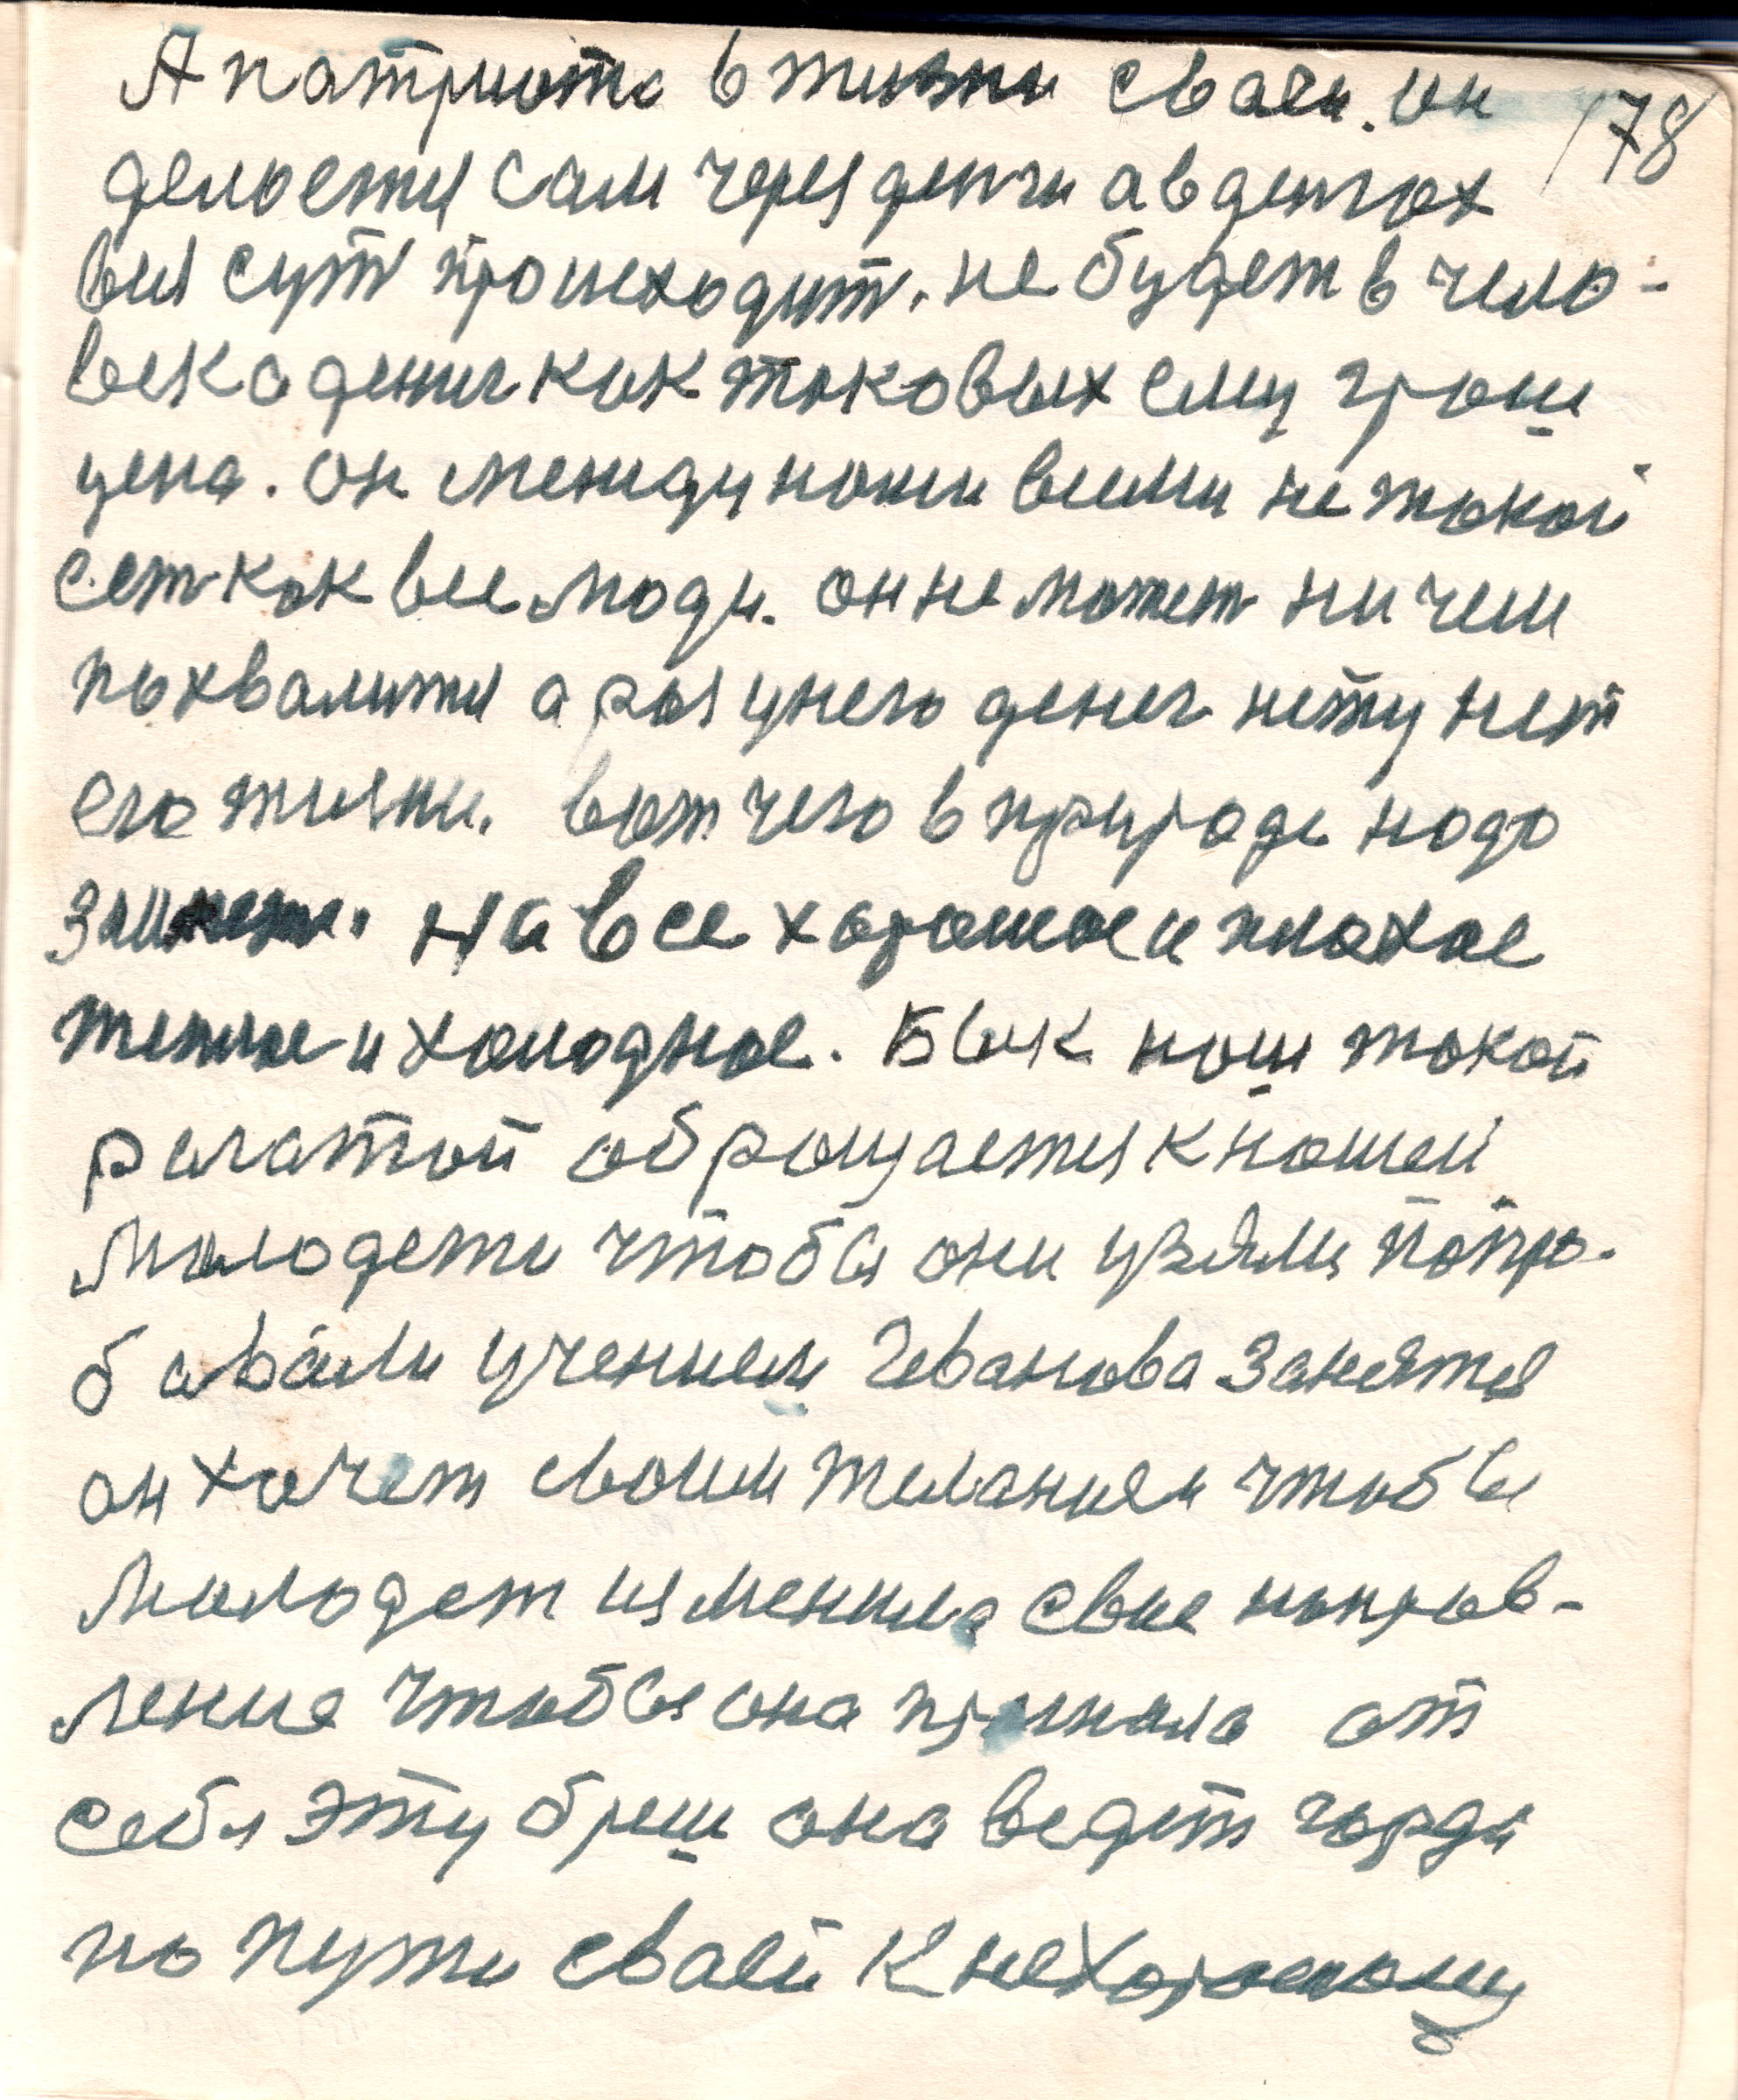 А патриота в жизни сваеи. он 178
делоется сам через денги а в денгах
вся сут происходит. не будет в чело-
века дениг как токовых ему грош
цена. он между нами всеми не такой
сет как все люди. он не может ни чем
пахвалится а раз унего денег нету нет
его жизни. вот чего в природе надо
На все харошое и плохое
теплое и холодное. Бык наш такой
рагатой обращается к нашей
молодежи чтобы они узяли попро-
бавали учением Иванова занятся
он хочет своим желанием чтобы
молодеж изменила свое направ-
ление чтобы она прагнала от
себя эту бреш она ведет горда
по пути сваей к нехорошому